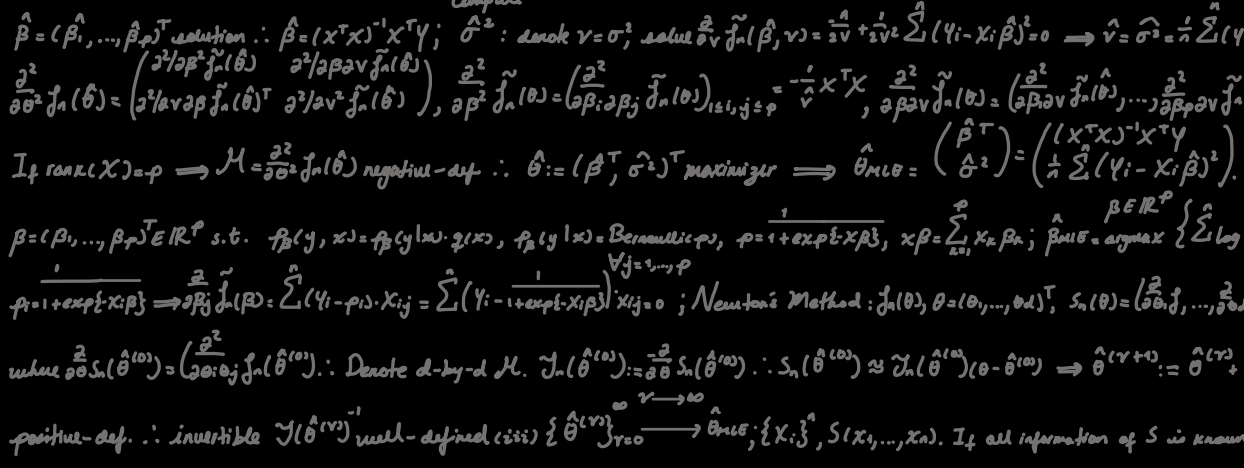 compute
β̂=(β̂₁,...,β̂p)ᵀ solution ∴ β̂=(XᵀX)⁻¹XᵀY; σ̂²: denote v=σ², solve ∂/∂v l̃n(β̂,v)=-n/2v+1/2v² Σⁿ(Yi-Xiβ̂)²=0 ⟹ v̂=σ̂²=1/n Σⁿ(Y
∂²/∂θ² ln(θ̂)=(∂²/∂β² l̃n(θ̂) ∂²/∂β∂v l̃n(θ̂) ∂²/∂v∂β l̃n(θ̂)ᵀ ∂²/∂v² l̃n(θ̂)), ∂²/∂β² l̃n(θ)=(∂²/∂βi∂βj l̃n(θ))1≤i,j≤p=-1/v̂ XᵀX, ∂²/∂β∂v l̃n(θ)=(∂²/∂β₁∂v l̃n(θ̂),...,∂²/∂βp∂v l̃n
If rank(X)=p ⟹ H=∂²/∂θ² ln(θ̂) negative-def ∴ θ̂:=(β̂ᵀ, σ̂²)ᵀ maximizer ⟹ θ̂MLE=(β̂ᵀ σ̂²)=((XᵀX)⁻¹XᵀY 1/n Σⁿ(Yi-Xiβ̂)²).
β=(β₁,...,βp)ᵀ∈ℝᵖ s.t. pβ(y,x)=pβ(y|x)·q(x), pβ(y|x)=Bernoulli(p), p=1/1+exp{-xβ}, xβ=Σᵖk=1 xkβk; β̂MLE=argmax β∈ℝᵖ {Σⁿ log
pi=1/1+exp{-Xiβ} ⟹ ∂/∂βj l̃n(β)=Σⁿ(Yi-pi)·Xij=Σⁿ(Yi-1/1+exp{-Xiβ})·Xij=0 ∀j=1,...,p; Newton's Method: ln(θ), θ=(θ₁,...,θd)ᵀ, Sn(θ)=(∂/∂θ₁ l,...,∂/∂θd
where ∂/∂θ Sn(θ̂⁽⁰⁾)=(∂²/∂θiθj ln(θ̂⁽⁰⁾). ∴ Denote d-by-d H. Jn(θ̂⁽⁰⁾):=-∂/∂θ Sn(θ̂⁽⁰⁾) ∴ Sn(θ̂⁽⁰⁾) ≈ Jn(θ̂⁽⁰⁾)(θ-θ̂⁽⁰⁾) ⟹ θ̂⁽ʳ⁺¹⁾:=θ̂⁽ʳ⁾+
positive-def. ∴ invertible J(θ̂⁽ʳ⁾)⁻¹ well-defined (iii) {θ̂⁽ʳ⁾}∞r=0 r⟶∞ ⟶ θ̂MLE; {Xi}ⁿ, S(x₁,...,xn). If all information of S is known